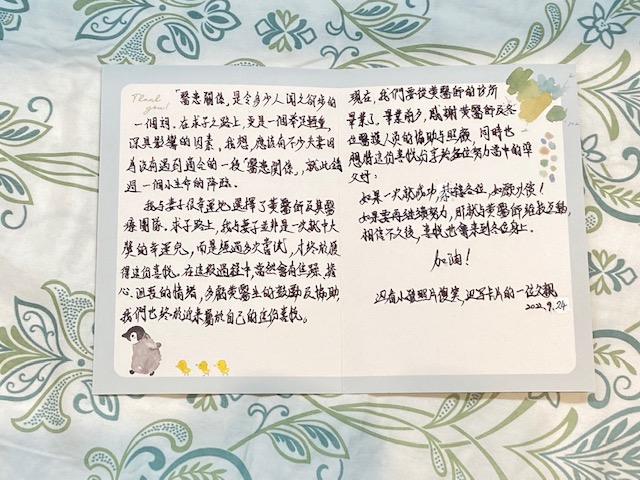 Thank you!
「醫患關係」是令多少人聞之卻步的
一個詞。在求子之路上,更是一個舉足輕重,
深具影響的因素。我想,應該有不少夫妻因
為沒有遇到適合的一段「醫患關係」,就此錯
過一個小生命的降臨。
我與妻子很幸運地選擇了黃醫師及其醫
療團隊。求子路上,我與妻子並非是一次就中大
獎的幸運兒,而是經過多次嘗試,才終於獲
得這份喜悅。在這段過程中,當然會有焦躁、擔
心、沮喪的情緒,多虧黃醫生的鼓勵及協助,
我們也終於迎來屬於自己的這份喜悅。
現在,我們要從黃醫師的診所
畢業了,畢業前夕,感謝黃醫師及各
位醫護人員的協助與照顧,同時也
想將這份喜悅分享給各位努力當中的準
父母:
如果一次就成功,恭喜各位,如願以償!
如果要再繼續努力,那就與黃醫師
相信不久後,喜悅也會來到各位身上。
加油!
迎寫卡片的一位父親
2022.9.24